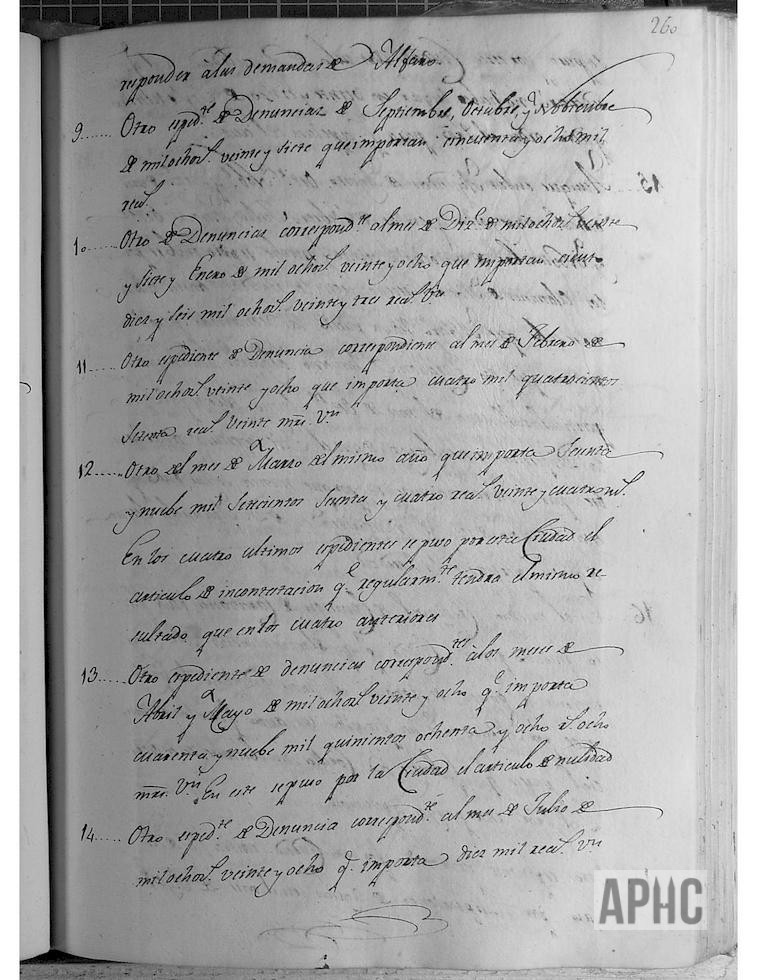 260
responder à las demandas de Alfaro.
9...... Otro esped.te de Denuncias de Septiembre, Octubre, y Nobiembre
de mil ochos.s veinte y siete que importan cincuenta y ocho mil
real.s
10...... Otro de Denuncias correspond.te al mes de Diz.e de mil ochos.s veinte
y siete y Enero de mil ochos.s veinte y ocho que importan ciento
diez y seis mil ochos.s veinte y tres real.s V.n
11...... Otro espediente de Denuncia correspondiente al mes de Febrero de
mil ochos.s veinte y ocho que importa cuatro mil quatrocientos
setenta real.s veinte mrs. V.n
12...... Otro del mes de Marzo del mismo año que importa
y nuebe mil setecientos y cuatro real.s veinte y cuatro
En los cuatro ultimos espedientes se puso por esta Ciudad el
articulo de incontestacion q.e regularm.te tendrá el mismo re-
sultado que en los cuatro anteriores
13...... Otro espediente de denuncias correspond.tes à los meses de
Abril y Mayo de mil ochos.s veinte y ocho q.e importa
cuarenta y nuebe mil quinientos ochenta y ocho r.s ocho
mrs. V.n En este se puso por la Ciudad el articulo de nulidad
14...... Otro esped.te de Denuncia correspond.te al mes de Julio de
mil ochos.s veinte y ocho q.e importa diez mil real.s V.n
APHC